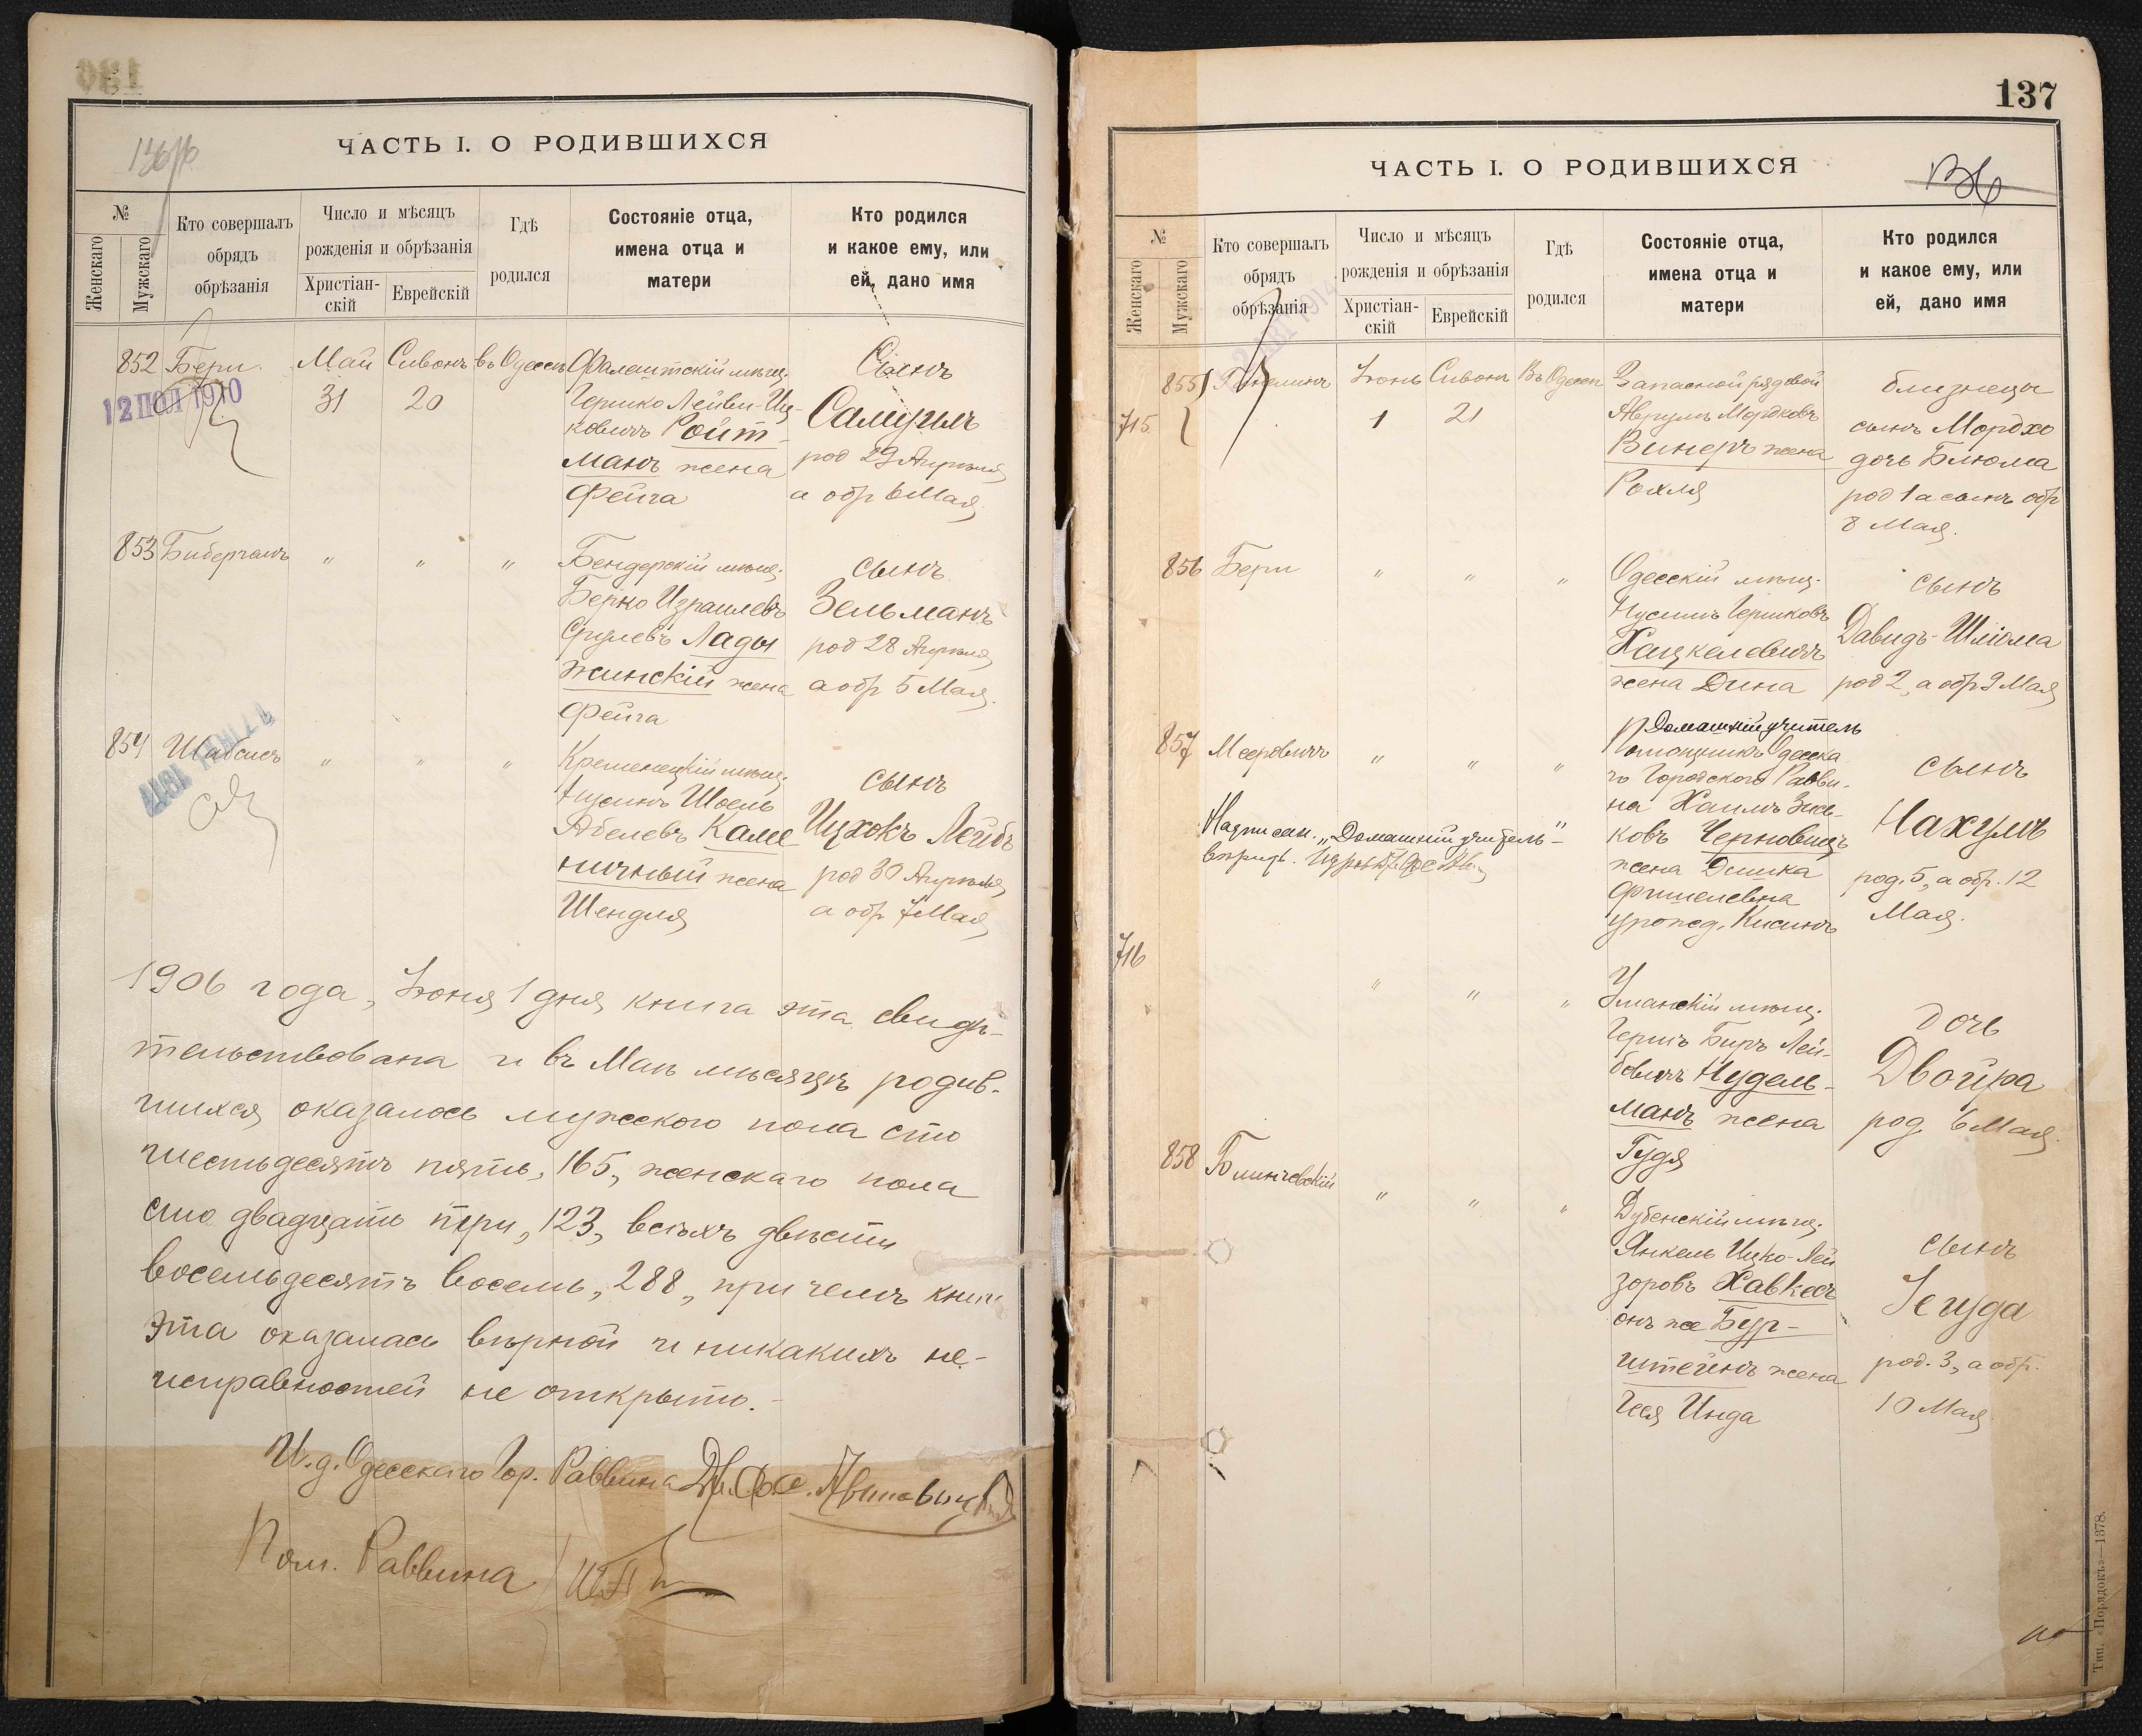 ЧАСТЬ I. О РОДИВШИХСЯ
№
Женскаго
Мужскаго
Кто совершалъ
обрядъ
обрѣзанія
Число и мѣсяцъ
рожденія и обрѣзанія
Христіан-
скій
Еврейскій
Гдѣ
родился
Состояніе отца,
имена отца и
матери
Кто родился
и какое ему, или
ей, дано имя
852
12 ІЮЛ 1910
Бери
Май
31
Сивонъ
20
въ Одессѣ
Фалештскій мѣщ.
Гершко Лейви-Иц-
ковичъ Ройт-
манъ жена
Фейга
Сынъ
Самуилъ
род 29 Апрѣля
а обр 6 Мая
853
Биберганъ
"
"
"
Бендерскій мѣщ.
Берко Израилевъ
Срулевъ Лады
жинскій жена
Фейга
сынъ
Зельманъ
род 28 Апрѣля
а обр 5 Мая
854
Шабсисъ
"
"
"
Кременецкій мѣщ.
Нусинъ Шоель
Абелевъ Каме
ничный жена
Шендля
сынъ
Ицхокъ Лейбъ
род 30 Апрѣля
а обр 7 Мая
1906 года, Іюня 1 дня книга эта свидѣ-
тельствована и въ Маѣ мѣсяцѣ родив-
шихся оказалось мужского пола сто
шестьдесятъ пять, 165, женскаго пола
сто двадцать три, 123, всѣхъ двѣсти
восемьдесятъ восемь, 288, при чемъ книга
эта оказалась вѣрной и никакихъ не-
исправностей не открыто.-
И.д. Одесскаго Гор. Раввина
Пом. Раввина
137
ЧАСТЬ I. О РОДИВШИХСЯ
136
№
Женскаго
Мужскаго
Кто совершалъ
обрядъ
обрѣзанія
Число и мѣсяцъ
рожденія и обрѣзанія
Христіан-
скій
Еврейскій
Гдѣ
родился
Состояніе отца,
имена отца и
матери
Кто родился
и какое ему, или
ей, дано имя
855
715
Іюнь
1
Сивонъ
21
Въ Одессѣ
Запасной рядовой
Аврумъ Мордковъ
Винеръ жена
Рохля
близнецы
сынъ Мордхо
дочь Блюма
род 1 а сынъ обр
8 Мая.
856
Бери
"
"
"
Одесскій мѣщ.
Нусимъ Гершковъ
Хацкелевичъ
жена Дина
сынъ
Давидъ-Шліома
род 2, а обр 9 Мая
857
Мееровичъ
"
"
"
Домашній учитель
Помощникъ Одесска
го Городского Равви-
на Хаимъ Зись-
ковъ Черновицъ
жена Дишка
Фишелевна
урожд. Кисинъ
сынъ
Нахумъ
род. 5, а обр. 12
Мая.
Надписан. „Домашній учитель"-
716
"
"
"
Уманскій мѣщ.
Гершъ Биръ Лей-
бовичъ Нудель-
манъ жена
Гудя
дочь
Двойра
род 6 Мая.
858
Блинчевскій
"
"
"
Дубенскій мѣщ.
Янкель Ицко-Лей
зоровъ Хавкесъ
онъ же Бур-
штейнъ жена
Геся Инда
сынъ
Іегуда
род. 3, а обр.
10 Мая
Тип. «Порядокъ»—1378.